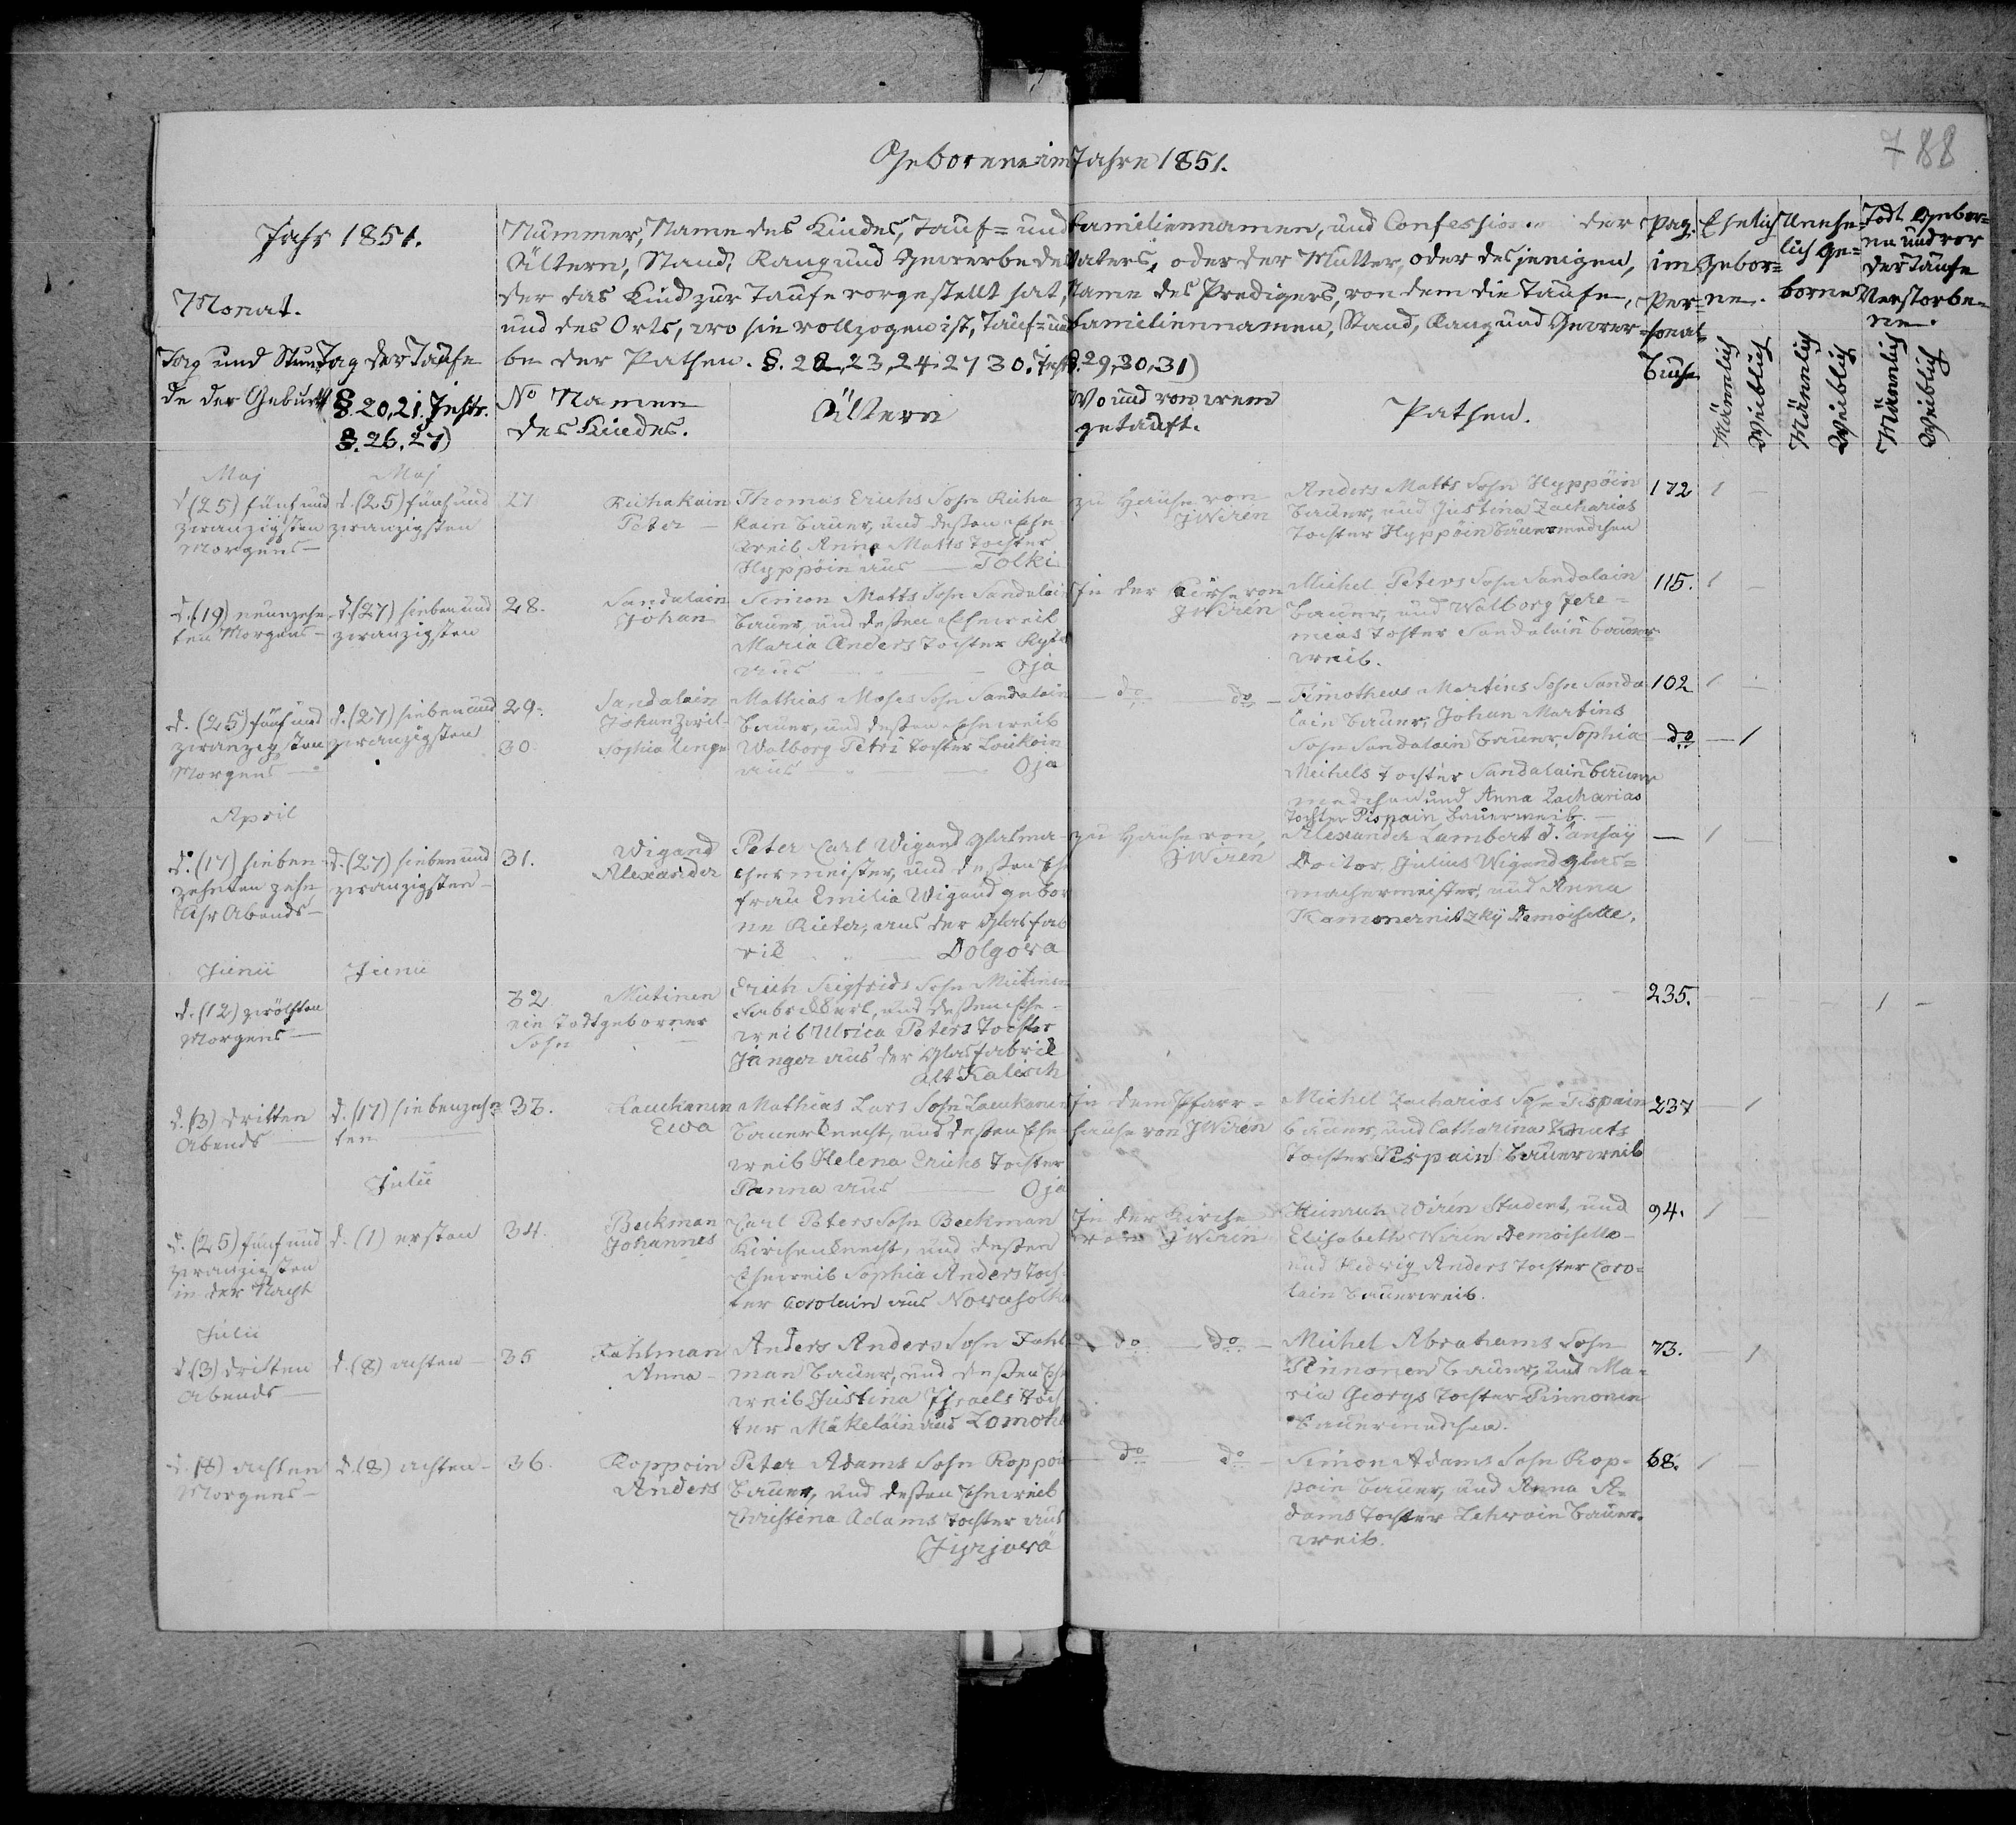 788
Geborene im Jahre 1851.
Jahr 1851.
Monat.
Tag und Stun-
de der Geburt
Tag der Taufe
§ 20,21. Instr.
§. 26, 27)
Nummer, Name des Kindes, Tauf= und Familiennamen, und Confession der
Ältern, Stand, Rang und Gewerbe des Vaters, oder der Mutter, oder desjenigen,
der das Kind zur Taufe vorgestellt hat, Name des Predigers, von dem die Taufe,
und des Orts, wo sie vollzogen ist, Tauf= und Familiennamen, Stand, Rang und Gewer-
be der Pathen. §. 22, 23, 24. 27 30. Inst. §. 29, 30, 31)
No Namen
des Kindes.
Ältern
Wo und von wem
getauft.
Pathen.
Pag.
im
Per=
sonal
Buche
Ehelich
Gebor=
ne.
Unehe=
lich Ge=
borne
Todt Gebor=
ne und vor
der Taufe
Verstorbe=
ne.
Männlich
Weiblich
Männlich
Weiblich
Männlich
Weiblich
Maj
d (25) fünf und
zwanzigsten
Morgens —
Maj
d. (25) fünf und
zwanzigsten
27
Riihakain
Peter —
Thomas Erichs Sohn Riiha
kain Bauer, und deßen Ehe
weib Anna Matts Tochter
Hyppöin aus — Tolki
zu Hause von
J Wirén
Anders Matts Sohn Hyppöin
Bauer, und Justina Zacharias
Tochter Hyppöin Bauermedchen
172 1 —
d. (19) neunzehn
ten Morgens —
d. (27) sieben und
zwanzigsten
28.
Sandalain
Johan
Simon Matts Sohn Sandalain
Bauer, und deßen Eheweib
Maria Anders Tochter
aus — Oja
In der Kirche von
J Wirén
Michel Peters Sohn Sandalain
Bauer, und Walborg Jere=
mias Tochter Sandalain Bauer
weib.
115. 1 —
d. (25) fünf und
zwanzigsten
Morgens —
d. (27) sieben und
zwanzigsten
29.
Sandalain
Johan Zwil-
30.
Sophia linge
Mathias Moses Sohn Sandalain
Bauer, und deßen Eheweib
Walborg Petri Tochter Loukain
aus — Oja
— do — do —
Timotheus Martins Sohn Sanda
lain Bauer, Johan Martins
Sohn Sandalain Bauer, Sophia
Michels Tochter Sandalain Bauer
medchen und Anna Zacharias
Tochter Pispain Bauerweib. —
102 1 —
do — 1
April
d. (17) sieben-
zehnten zehn
Uhr Abends —
d. (27) sieben und
zwanzigsten —
31.
Wigand
Alexander
Peter Carl Wigand Glasma-
chermeister, und deßen Ehe
frau Emilia Wigand gebor
ne Rieter, aus der Glasfab
rik — Dolgowa
zu Hause von
J Wirén
Alexander Lambert d.
Doctor, Julius Wigand Glas=
machermeister, und Anna
Demoiselle.
— 1 —
Junii
d. (12) zwölften
Morgens —
Junii
32
Miitinen
ein todtgeborner
Sohn
Erich Siegfrids Sohn Miitinen
Fabrikkerl, und deßen Ehe-
weib Ulrica Peters Tochter
Jänger aus der Glasfabrik
Alt Kalisch
235. — — — 1 —
d. (3) dritten
Abends —
d. (17) siebenzehn
ten
33.
Laukanen
Ewa
Mathias Lars Sohn Laukanen
Bauerknecht, und deßen Ehe
weib Helena Erichs Tochter
Panna aus — Oja
In dem Pfarr=
hause von J Wirén
Michel Zacharias Sohn Pispain
Bauer, und Catharina Knuts
Tochter Pispain Bauerweib
237 — 1
d. (25) fünf und
zwanzigsten
in der Nacht
Julii
d. (1) ersten
34.
Beekman
Johannes
Carl Peters Sohn Beekman
Kirchenknecht, und deßen
Eheweib Sophia Anders Toch=
ter Corolain aus Nowasolka
In der Kirche
von J Wirén
Heinrich Wirén Student, und
Elisabeth Wirén Demoiselle
und Hedwig Anders Tochter Coro=
lain Bauerweib.
94. 1 —
Julii
d. (3) dritten
Abends —
d. (8) achten —
35
Fahlman
Anna —
Anders Anders Sohn Fahl
man Bauer, und deßen Ehe
weib Justina Israels Toch
ter Mäkeläin aus
— do — do —
Michel Abrahams Sohn
Pinnonen Bauer, und Ma=
ria Georgs Tochter Pinnonen
Bauermedchen.
73. — 1
d. (8) achten
Morgens —
d. (8) achten —
36.
Roppoin
Anders
Peter Adams Sohn Roppoin
Bauer, und deßen Eheweib
Christina Adams Tochter aus
— do — do —
Simon Adams Sohn Rop-
poin Bauer, und Anna A=
dams Tochter Lehwoin Bauer=
weib.
68. 1 —